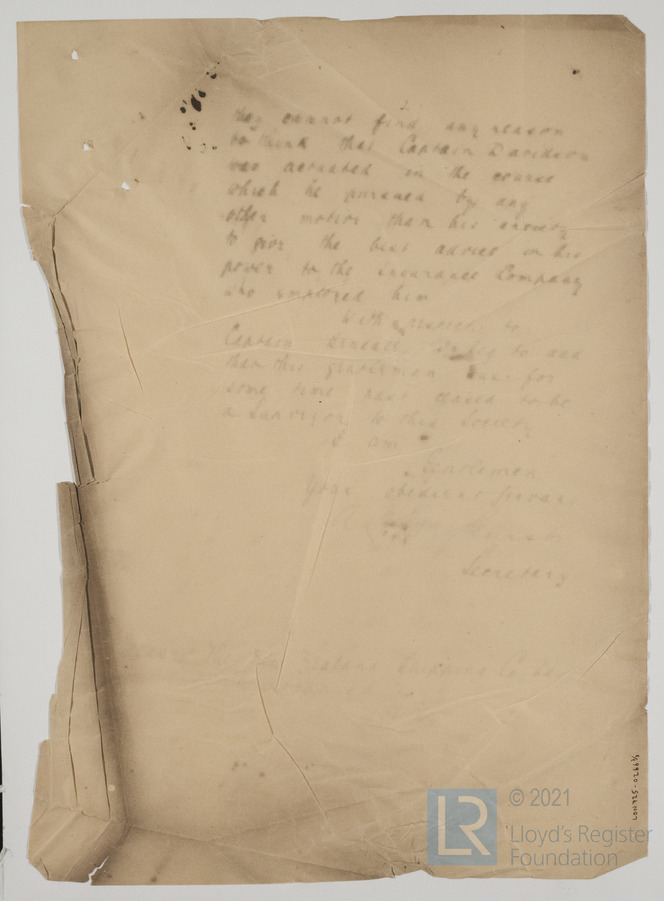 they cannot find any reason
to think that Captain Davidson
was actuated in the course
which he pursued by any
other motive than his
to give the best advice in his
power to the Insurance Company
who employed him
With respect to
Captain beg to add
that this gentleman has for
some time past ceased to be
a Surveyor to this Society
I am
Gentlemen
Your obedient Servant
Secretary
The New Zealand Shipping Co
LON725-0266
© 2021
LR
Lloyd's Register
Foundation